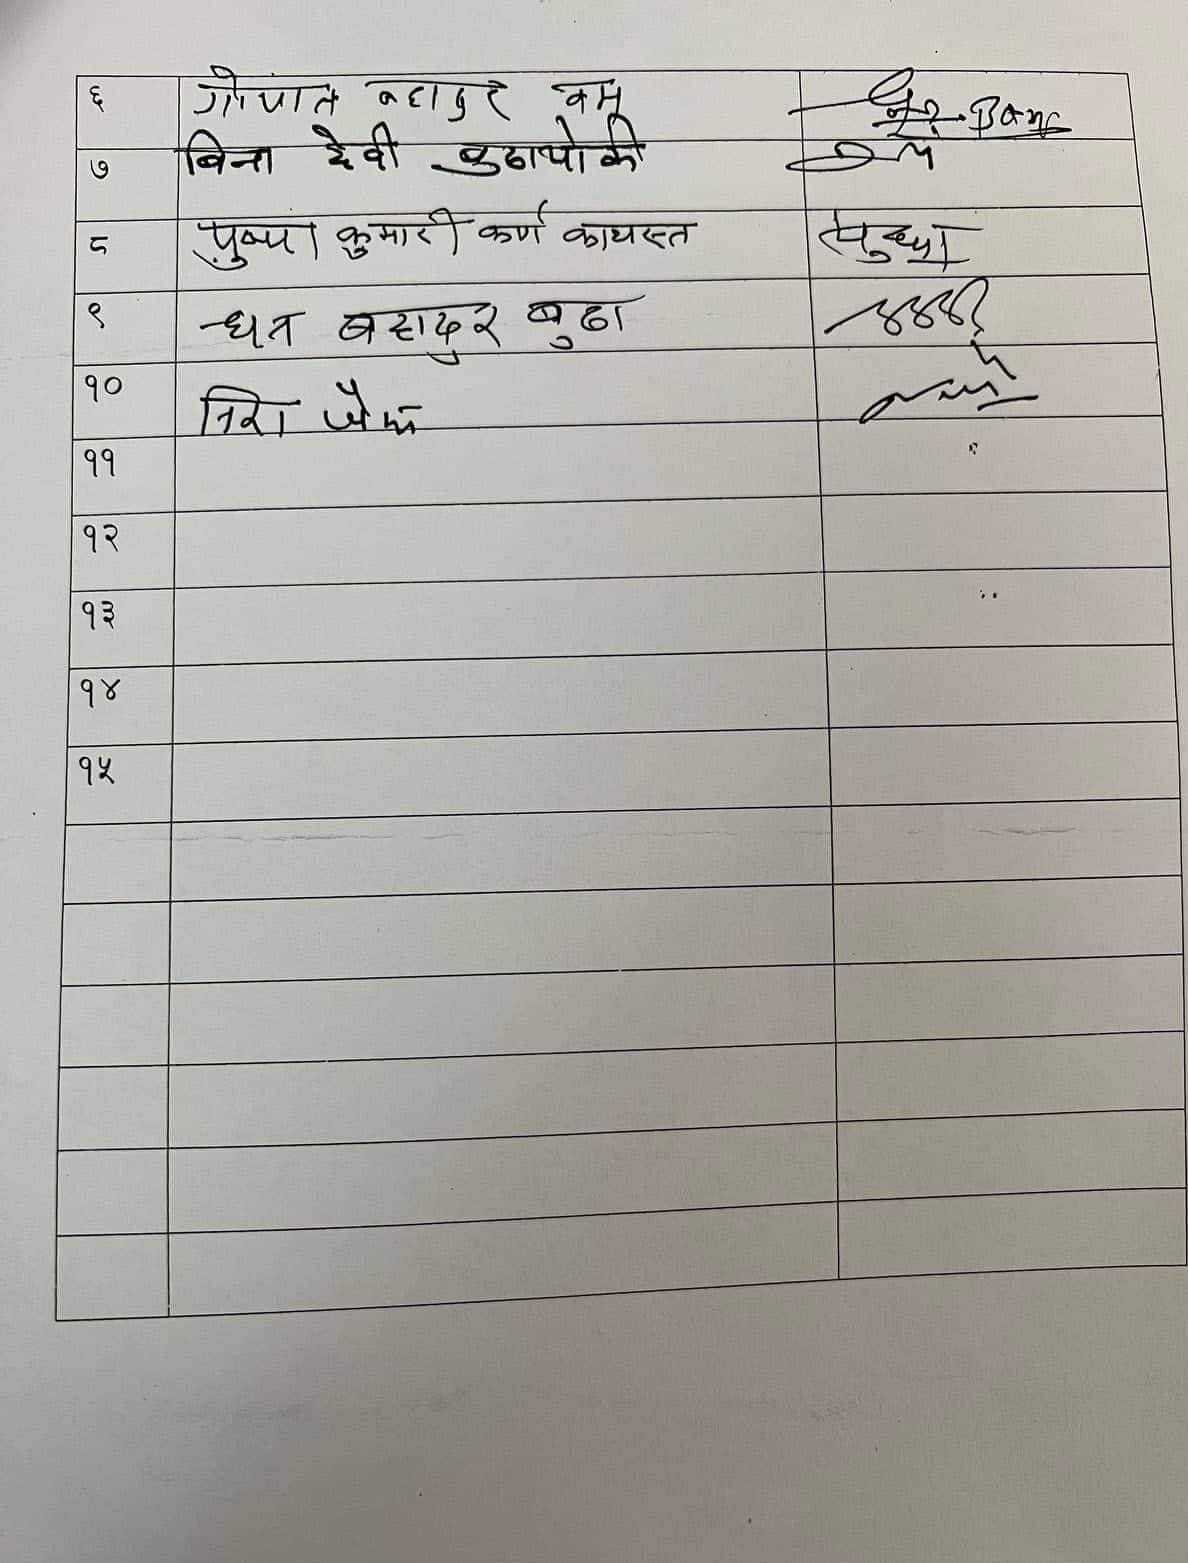 ६ गोपाल बहादुर बम
७ बिना देवी बुढाथोकी
८ पुष्पा कुमारी कर्ण कायस्त पुष्पा
९ धन बहादुर बुढा
१०
११
१२
१३
१४
१५